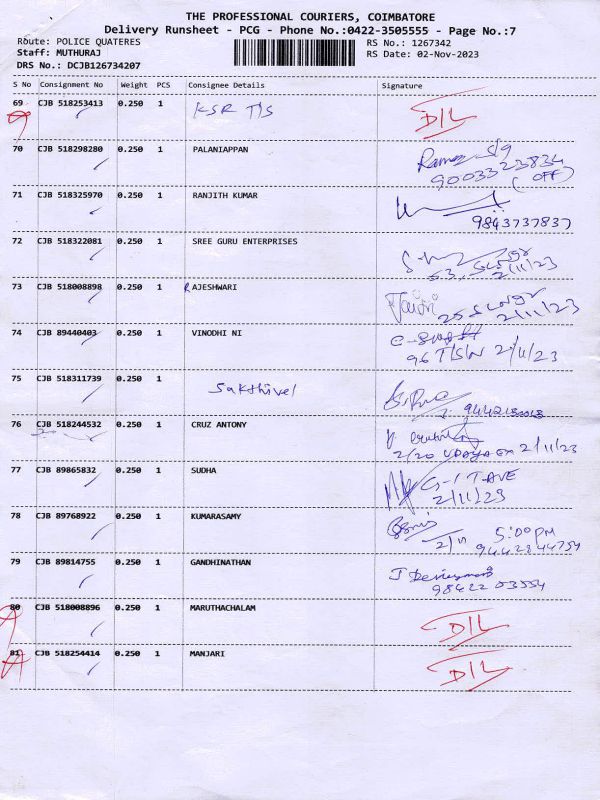 THE PROFESSIONAL COURIERS, COIMBATORE
Delivery Runsheet - PCG - Phone No.:0422-3505555 - Page No.:7
Route: POLICE QUATERES RS No.: 1267342
Staff: MUTHURAJ RS Date: 02-Nov-2023
DRS No.: DCJB126734207
S No Consignment No Weight PCS Consignee Details Signature
69 CJB 518253413 0.250 1 KSR T/S D/L
70 CJB 518298280 0.250 1 PALANIAPPAN
9003323834
(OFF)
71 CJB 518325970 0.250 1 RANJITH KUMAR
9843737837
72 CJB 518322081 0.250 1 SREE GURU ENTERPRISES
2/11/23
73 CJB 518008898 0.250 1 RAJESHWARI
2/11/23
74 CJB 89440403 0.250 1 VINODHI NI
96 T/S/W 2/11/23
75 CJB 518311739 0.250 1 Sakthivel
76 CJB 518244532 0.250 1 CRUZ ANTONY
2/20 2/11/23
77 CJB 89865832 0.250 1 SUDHA G-1 T-AVE
2/11/23
78 CJB 89768922 0.250 1 KUMARASAMY 5:00 PM
2/11 9442844754
79 CJB 89814755 0.250 1 GANDHINATHAN
98422 03554
80 CJB 518008896 0.250 1 MARUTHACHALAM D/L
81 CJB 518254414 0.250 1 MANJARI D/L